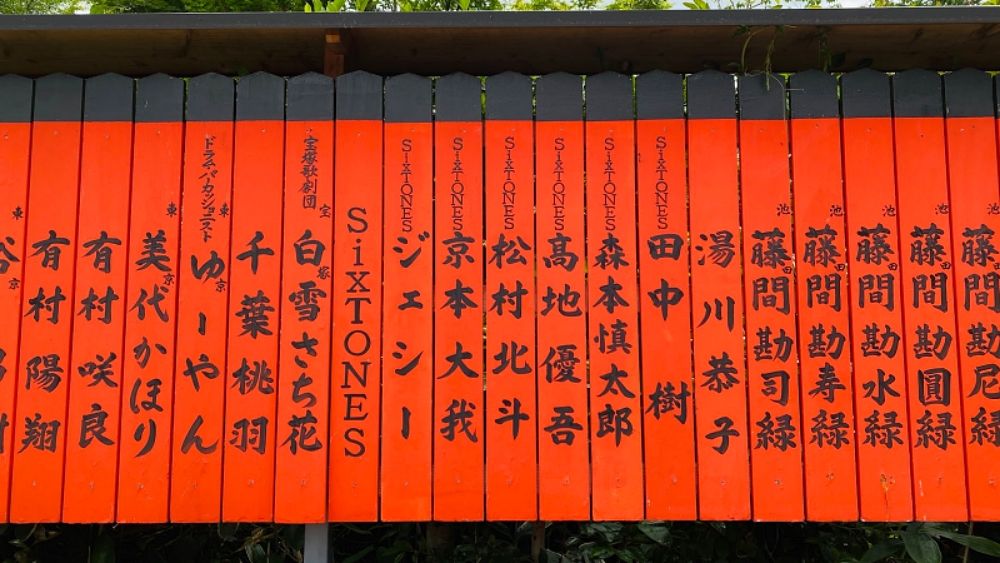 有村陽翔
有村咲良
東京 美代かほり
ドラマ・パーカッショニスト
東京 ゆーやん
千葉桃羽
宝塚歌劇団
宝塚 白雪さち花
SixTONES
SixTONES ジェシー
SixTONES 京本大我
SixTONES 松村北斗
SixTONES 高地優吾
SixTONES 森本慎太郎
SixTONES 田中樹
湯川恭子
池田 藤間勘司緑
池田 藤間勘寿緑
池田 藤間勘水緑
池田 藤間勘圓緑
池田 藤間勘尼緑